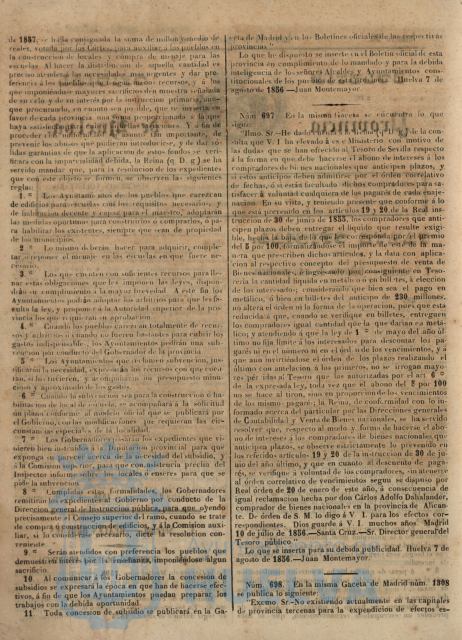 de 1857, se halla consignada la suma de millon y medio de
reales, votada por las Córtes, para auxiliar á los pueblos en
la construccion de locales y compra de menaje para las
escuelas Al hacer la distribucion de aquella cantidad es
preciso atender á las necesidades mas urgentes y dar pre-
ferencia á los pueblos que tengan menos recursos, y á los
que imponiéndose mayores sacrificios den muestra señalada
de su celo y de su interés por la instruccion primaria, aun-
que procurando, en cuanto sea posible, que se invierta en
favor de cada provincia una suma proporcionada á la que
haya satisfecho
proceder
prevenir los abusos que pudieran introducirse, y de dar só-
lidas garantías de que la aplicacion de estos fondos se veri-
ficará con la imparcialidad debida, la Reina (q. D. g.) se ha
servido mandar que, para la resolucion de los expedientes
que con este objeto se formen, se observen las siguientes
reglas:
1.ª Los Ayuntamientos de los pueblos que carezcan
de edificio para escuelas con los requisitos necesarios, y
de habitacion decente y capaz para el maestro, adoptarán
las medidas oportunas para construirlos ó comprarlos, ó pa-
ra habilitar los existentes, siempre que sean de propiedad
de los municipios.
2.ª Lo mismo deberán hacer para adquirir, comple-
tar ó reponer el menaje en las escuelas en que fuere ne-
cesario.
3.ª Los que cuenten con suficientes recursos para lle-
nar estas obligaciones que les imponen las leyes, dispon-
drán su cumplimiento á la mayor brevedad. A este fin los
Ayuntamientos podrán adoptar los arbitrios para que les fa-
culta la ley, y proponer á la Autoridad superior de la pro-
vincia los que requieran su aprobacion.
4.ª Cuando los pueblos carezcan totalmente de recur-
sos y arbitrios ó cuando no fueren bastantes para cubrir los
gastos indispensables, los Ayuntamientos pedirán una sub-
vencion por conducto del Gobernador de la provincia.
5.ª Los Ayuntamientos que soliciten subvencion, jus-
tificarán la necesidad, expresarán los recursos con que cuen-
tan, si los tuvieren, y acompañarán un presupuesto minu-
cioso y aproximado de los gastos.
6.ª Cuando la subvencion sea para la construccion ó ha-
bilitacion de local de escuela, se acompañará á la solicitud
un plano conforme al modelo oficial que se publicará por
el Gobierno, con las modificaciones que requieran las cir-
cunstancias especiales de la localidad.
7.ª Los Gobernadores pasarán los expedientes que vi-
nieren bien instruidos á la Diputacion provincial para que
exponga cuanto le conste de la necesidad del subsidio, y
á la Comision superior, para que con asistencia precisa del
Inspector informe si los locales ó enseres para que se
pide la subvencion.
8.ª Cumplidas estas formalidades, los Gobernadores
remitirán los expedientes al Gobierno por conducto de la
Direccion general de Instruccion pública, para que oyendo
precisamente al Consejo superior del ramo, cuando se trate
de compra ó construccion de edificios, y á la Comision auxi-
liar, si lo considerase necesario, dicte la resolucion con-
veniente.
9.ª Serán atendidos con preferencia los pueblos que
demuestren interés por la enseñanza, imponiéndose algun
sacrificio.
10. Al comunicar á los Gobernadores la concesion de
subsidios se expresará la época en que han de hacerse efec-
tivos, á fin de que los Ayuntamientos puedan preparar los
trabajos con la debida oportunidad.
11. Toda concesion de subsidio se publicará en la Ga-
ceta de Madrid y en los Boletines oficiales de las respectivas
provincias."
Lo que he dispuesto se inserte en el Boletin oficial de esta
provincia en cumplimiento de lo mandado y para la debida
inteligencia de los señores Alcaldes y Ayuntamientos cons-
titucionales de los pueblos de esta provincia. Huelva 7 de
agosto de 1856.—Juan Montemayor.
Núm. 697. En la misma Gaceta se encuentra lo que
sigue:
"Ilmo. Sr.—He dado cuenta á la Reina (q. D. g.) de la con-
sulta que V. I. ha elevado á este Ministerio con motivo de
las dudas que se han ofrecido al Tesoro de Sevilla respecto
á la forma en que debe hacerse el abono de intereses á los
compradores de bienes nacionales que anticipen plazos, y
si estos anticipos deben admitirse por el órden correlativo
de fechas, ó si están facultados dichos compradores para sa-
tisfacer á voluntad cualquiera de los pagarés de cada enaje-
nacion. En su vista, y teniendo presente que conforme á lo
que está prevenido en los artículos 19 y 20 de la Real ins-
truccion de 30 de junio de 1855, los compradores que anti-
cipen plazos deben entregar el líquido que resulte exigi-
ble, hecha la baja de lo que les corresponda por el premio
del 5 por 100, formalizándose el importe de este de la ma-
nera que prescriben dichos artículos, y la data con aplica-
cion al respectivo concepto del presupuesto de venta de
Bienes nacionales, é ingresando por consiguiente en Teso-
rería la cantidad líquida en metálico ó en billetes, á eleccion
de los interesados; considerando que bien sea el pago en
metálico, ó bien en billetes del anticipo de 230 millones,
no altera el órden ni la forma de la operacion, pues que está
reducida á que, cuando se verifique en billetes, entreguen
los compradores igual cantidad que la que darian en metá-
lico; y atendiendo á que la ley de 1.º de mayo del año úl-
timo no fija límite á los interesados para descontar los pa-
garés ni en el número ni en el órden de los vencimientos, y á
que aun invirtiéndose el órden de los plazos realizando el
último con antelacion á los primeros, no se irrogan mayo-
res pérdidas al Tesoro que las autorizadas por el art. 6.º
de la expresada ley, toda vez que el abono del 5 por 100
no se hace al tiron, sino en proporcion de los vencimientos
de los mismos pagarés; la Reina, de conformidad con lo in-
formado acerca del particular por las Direcciones generales
de Contabilidad y Venta de Bienes nacionales, se ha servido
resolver que, respecto al modo y forma de hacerse el abo-
no de intereses á los compradores de bienes nacionales que
anticipen plazos, se observe estrictamente lo prevenido en
los referidos artículos 19 y 20 de la instruccion de 30 de ju-
nio del año último, y que en cuanto al descuento de paga-
rés, se verifique á voluntad de los compradores, sin atenerse
al órden correlativo de vencimientos segun se dispuso por
Real órden de 20 de enero de este año, á consecuencia de
igual reclamacion hecha por don Cárlos Adolfo Dahalander,
comprador de bienes nacionales en la provincia de Alican-
te. De órden de S. M. lo digo á V. I. para los efectos cor-
respondientes. Dios guarde á V. I. muchos años. Madrid
10 de julio de 1856.—Santa Cruz.—Sr. Director general del
Tesoro público."
Lo que se inserta para su debida publicidad. Huelva 7 de
agosto de 1856.—Juan Montemayor.
Núm. 698. En la misma Gaceta de Madrid núm. 1308
se publica lo siguiente:
"Excmo. Sr.—No existiendo actualmente en las capitales
de provincia tercenas para la expendicion de efectos es-